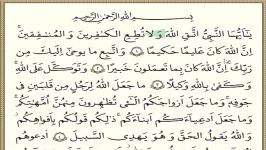 بِسْمِ اللَّهِ الرَّحْمَٰنِ الرَّحِيمِ
يَا أَيُّهَا النَّبِيُّ اتَّقِ اللَّهَ وَلَا تُطِعِ الْكَافِرِينَ وَالْمُنَافِقِينَ
إِنَّ اللَّهَ كَانَ عَلِيمًا حَكِيمًا ۝١ وَاتَّبِعْ مَا يُوحَىٰ إِلَيْكَ مِن
رَّبِّكَ إِنَّ اللَّهَ كَانَ بِمَا تَعْمَلُونَ خَبِيرًا ۝٢ وَتَوَكَّلْ عَلَى اللَّهِ
وَكَفَىٰ بِاللَّهِ وَكِيلًا ۝٣ مَّا جَعَلَ اللَّهُ لِرَجُلٍ مِّن قَلْبَيْنِ فِي
جَوْفِهِ وَمَا جَعَلَ أَزْوَاجَكُمُ اللَّائِي تُظَاهِرُونَ مِنْهُنَّ أُمَّهَاتِكُمْ
وَمَا جَعَلَ أَدْعِيَاءَكُمْ أَبْنَاءَكُمْ ذَٰلِكُمْ قَوْلُكُم بِأَفْوَاهِكُمْ
وَاللَّهُ يَقُولُ الْحَقَّ وَهُوَ يَهْدِي السَّبِيلَ ۝٤ ادْعُوهُمْ